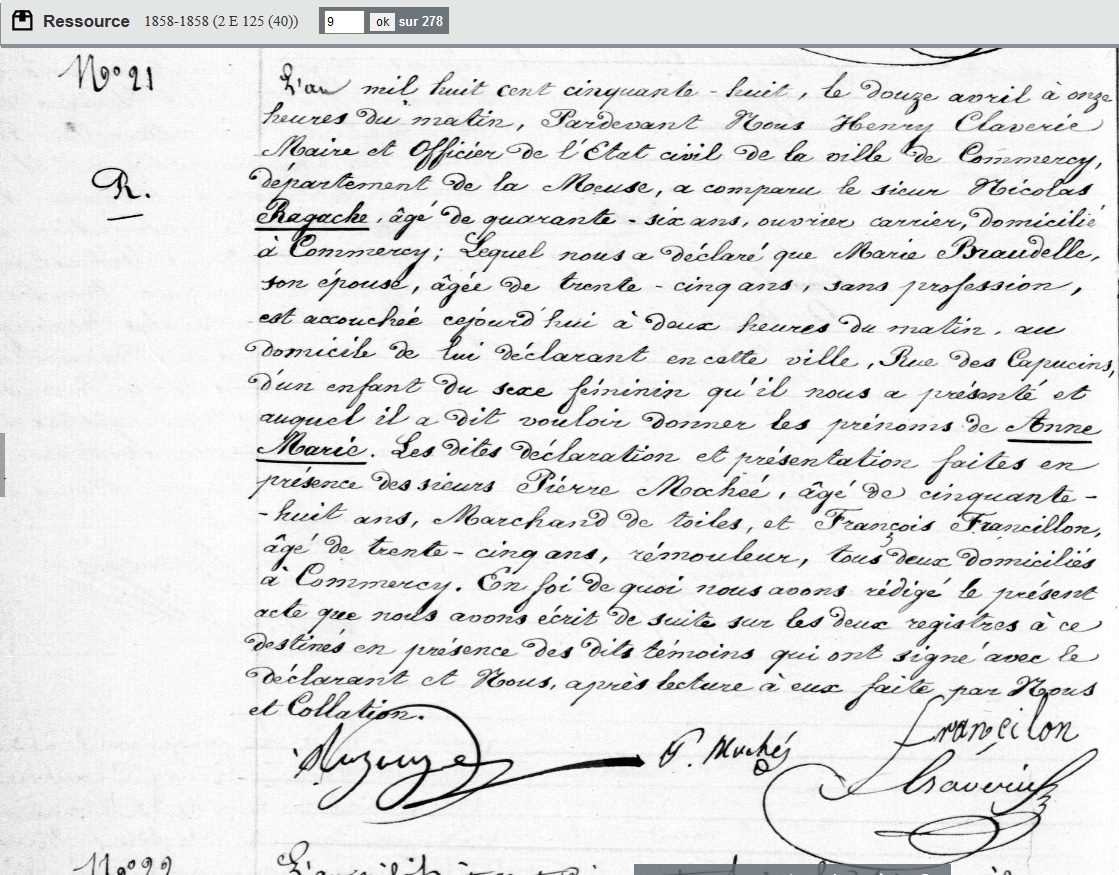 Ressource 1858-1858 (2 E 125 (40)) 9 ok sur 278
Nº 21
L'an mil huit cent cinquante - huit, le douze avril à onze
heures du matin, Pardevant Nous Henry Claverie
Maire et Officier de l'Etat civil de la ville de Commercy,
département de la Meuse, a comparu le sieur Nicolas
R.
Ragache, âgé de quarante - six ans, ouvrier carrier, domicilié
à Commercy; Lequel nous a déclaré que Marie Braudelle,
son épouse, âgée de trente - cinq ans, sans profession,
est accouchée cejourd'hui à deux heures du matin, au
domicile de lui déclarant en cette ville, Rue des Capucins,
d'un enfant du sexe féminin qu'il nous a présenté et
auquel il a dit vouloir donner les prénoms de Anne
Marie. Les dites déclaration et présentation faites en
présence des sieurs Pierre Mochéé, âgé de cinquante -
- huit ans, Marchand de toiles, et François Francillon,
âgé de trente - cinq ans, rémouleur, tous deux domiciliés
à Commercy. En foi de quoi nous avons rédigé le présent
acte que nous avons écrit de suite sur les deux registres à ce
destinés en présence des dits témoins qui ont signé avec le
déclarant et Nous, après lecture à eux faite par Nous
et Collation.
Francilon
Claverie
Nº 22